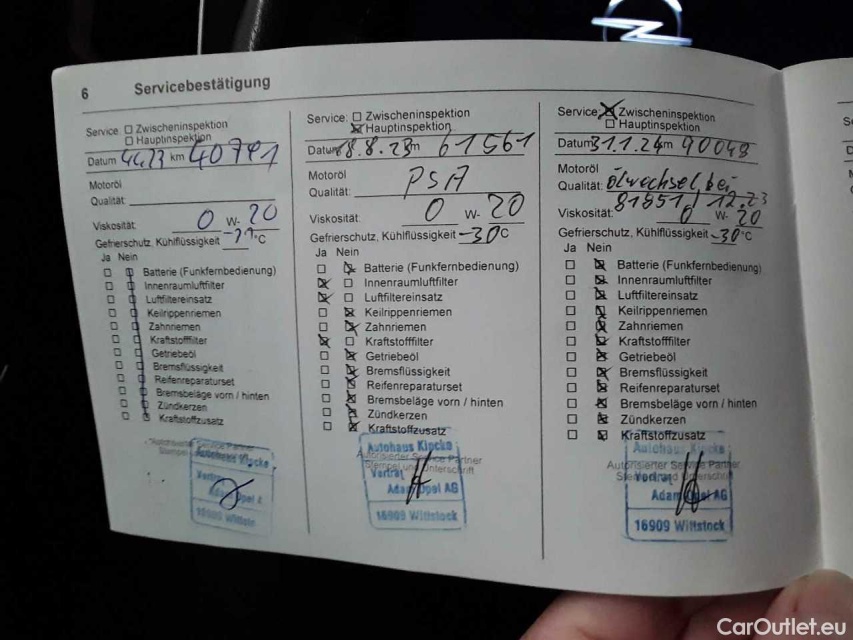 6 Servicebestätigung
Service: Zwischeninspektion
Hauptinspektion
Datum 4.4.23 km 40791
Motoröl
Qualität:
Viskosität: 0 W- 20
Gefrierschutz, Kühlflüssigkeit -21 °C
Ja Nein
Batterie (Funkfernbedienung)
Innenraumluftfilter
Luftfiltereinsatz
Keilrippenriemen
Zahnriemen
Kraftstofffilter
Getriebeöl
Bremsflüssigkeit
Reifenreparaturset
Bremsbeläge vorn / hinten
Zündkerzen
Kraftstoffzusatz
Service Partner
Autohaus Kipcke
Vertrag
Adam Opel A
16909 Wittsto
Service: Zwischeninspektion
Hauptinspektion
Datum 18.8.23 km 61561
Motoröl
Qualität: PSA
Viskosität: 0 W- 20
Gefrierschutz, Kühlflüssigkeit -30 °C
Ja Nein
Batterie (Funkfernbedienung)
Innenraumluftfilter
Luftfiltereinsatz
Keilrippenriemen
Zahnriemen
Kraftstofffilter
Getriebeöl
Bremsflüssigkeit
Reifenreparaturset
Bremsbeläge vorn / hinten
Zündkerzen
Kraftstoffzusatz
Autohaus Kipcke
Autorisierter Service Partner
Stempel und Unterschrift
Vertrag
Adam Opel AG
16909 Wittstock
Service: Zwischeninspektion
Hauptinspektion
Datum 31.1.24 km 90048
Motoröl
Qualität: Ölwechsel bei
81851 / 12.23
Viskosität: 0 W- 20
Gefrierschutz, Kühlflüssigkeit -30 °C
Ja Nein
Batterie (Funkfernbedienung)
Innenraumluftfilter
Luftfiltereinsatz
Keilrippenriemen
Zahnriemen
Kraftstofffilter
Getriebeöl
Bremsflüssigkeit
Reifenreparaturset
Bremsbeläge vorn / hinten
Zündkerzen
Kraftstoffzusatz
Autohaus Kipcke
Autorisierter Service Partner
Stempel und Unterschrift
Vertrag
Adam Opel AG
16909 Wittstock
CarOutlet.eu